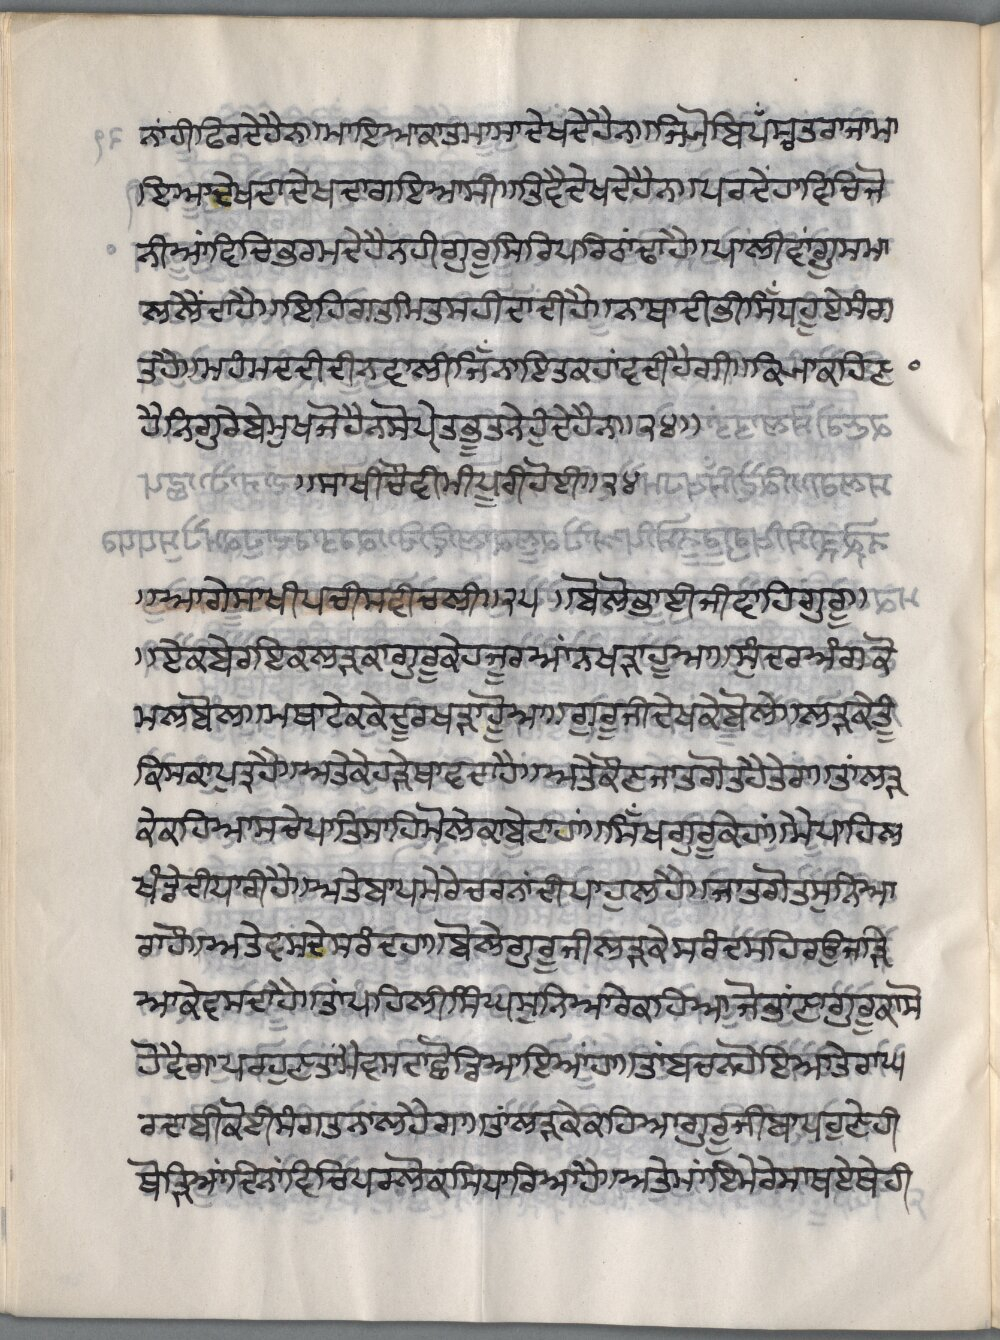 ਨਾਂਹੀ ਫਿਰਦੇ ਹੈਨ॥ ਮਾਇਆ ਕਾ ਤਮਾਸਾ ਦੇਖਦੇ ਹੈਨ॥ ਜਿਸੋ ਬਿਪੱਸ੍ਚਤ ਰਾਜਾ ਮਾ
ਇਆ ਦੇਖਦਾ ਦੇਖਦਾ ਗਇਆ ਸੀ॥ ਤਿਵੈ ਦੇਖਦੇ ਹੈਨ॥ ਪਰ ਦੇਹਾ ਵਿਚਿ ਜੋ
ਨੀਆਂ ਵਿਚਿ ਭਰਮਦੇ ਹੈਨ ਹੀ ਗੁਰੂ ਸਿਰਿ ਪਰਿ ਰਾਂਢਾ ਹੈ॥ ਪਾਲੀ ਵਾਂਗੂ ਸਮਾ
ਲ ਲੈਂਦਾ ਹੈ॥ ਇਹਿ ਗਤੀ ਮਤ ਸਹੀਦਾਂ ਦੀ ਹੈ॥ ਨਾਥਾ ਦੀ ਭੀ ਸਿੱਧ ਹੂਏ ਸੰਗ
ਤਿ ਹੈ॥ ਮਹੰਮਦ ਦੀ ਦੀਨ ਵਾਲੀ ਜਿੱਨਾ ਇਤ ਕਹਾਂਵਦੀ ਹੈਗੀ॥ ਕਿਆ ਕਹਿਣ
ਹੈ ਨਿਗੁਰੇ ਬੇਮੁਖ ਜੋ ਹੈਨ ਸੋ ਪ੍ਰੇਤ ਭੂਤਨੇ ਹੁੰਦੇ ਹੈਨ॥੨੪॥
॥ਸਾਖੀ ਚੌਵੀਮੀ ਪੂਰੀ ਹੋਈ॥੨੪
॥ਆਗੇ ਸਾਖੀ ਪਚੀਸਵੀ ਚਲੀ॥੨੫॥ ਬੋਲੋ ਭਾਈ ਜੀ ਵਾਹਿਗੁਰੂ॥
॥ਏਕ ਬੇਰ ਇਕ ਲੜਕਾ ਗੁਰੂ ਕੇ ਹਜੂਰ ਆਂਨ ਖੜਾ ਹੂਆ॥ ਸੁੰਦਰ ਅੰਗ ਕੋ
ਮਲ ਬੋਲ॥ ਮਥਾ ਟੇਕ ਕੇ ਦੂਰ ਖੜਾ ਹੋਆ॥ ਗੁਰੂ ਜੀ ਦੇਖ ਕੇ ਬੋਲੇ॥ ਲੜਕੇ ਤੂੰ
ਕਿਸ ਕਾ ਪੁਤ੍ਰ ਹੈ॥ ਅਤੇ ਕੇਹੜੇ ਥਾਵ ਦਾ ਹੈ॥ ਅਤੇ ਕੌਣ ਜਾਤ ਗੋਤ ਹੈ ਤੇਰਾ॥ ਤਾਂ ਲੜ
ਕੇ ਕਹਿਆ ਸਚੇ ਪਾਤਿਸਾਹਿ ਮੋਲੇ ਕਾ ਬੇਟਾ ਹਾਂ॥ ਸਿੱਖ ਗੁਰੂ ਕੇ ਹਾਂ॥ ਮੇ ਪਾਹਿਲ
ਖੰਡੇ ਦੀ ਧਾਰੀ ਹੈ॥ ਅਤੇ ਬਾਪ ਮੇਰੇ ਚਰਨਾਂ ਦੀ ਪਾਹੁਲ ਹੈ॥ ਜਾਤ ਗੋਤ ਸੁਨਿਆ
ਰਾ ਹੌ॥ ਅਤੇ ਵਸਦੇ ਸਰੰਦ ਹਾ॥ ਬੋਲੇ ਗੁਰੂ ਜੀ ਲੜਕੇ ਸਰੰਦ ਸਹਿਰ ਉਜਾੜਿ
ਆ ਕੇ ਵਸਦਾ ਹੈ॥ ਤਾਂ ਪਾਹਿਲੀ ਸਿੰਘ ਸੁਨਿਆਰੇ ਕਹਿਆ ਜੋ ਭਾਂਣਾ ਗੁਰੂ ਕਾ ਸੋ
ਹੋਵੈਗਾ ਪਰ ਹੁਣ ਤਾਂ ਮੈ ਵਸਦਾ ਛੋੜਿ ਆਇਆਂ ਹਾ॥ ਤਾਂ ਬਚਨ ਹੋਇਆ ਤੇਰਾ ਘ
ਰਦਾ ਬੀ ਕੋਈ ਸੰਗਤ ਨਾਲ ਹੈਗਾ॥ ਤਾਂ ਲੜਕੇ ਕਹਿਆ ਗੁਰੂ ਜੀ ਬਾਪ ਹੁਣੇ ਹੀ
ਥੋੜਿਆਂ ਦਿਨਾਂ ਵਿਚਿ ਪਰਲੋਕ ਸਿਧਾਰਿਆ ਹੈ॥ ਅਤੇ ਮਾਂਇ ਮੇਰੇ ਸਾਥ ਏਥੇ ਹੀ